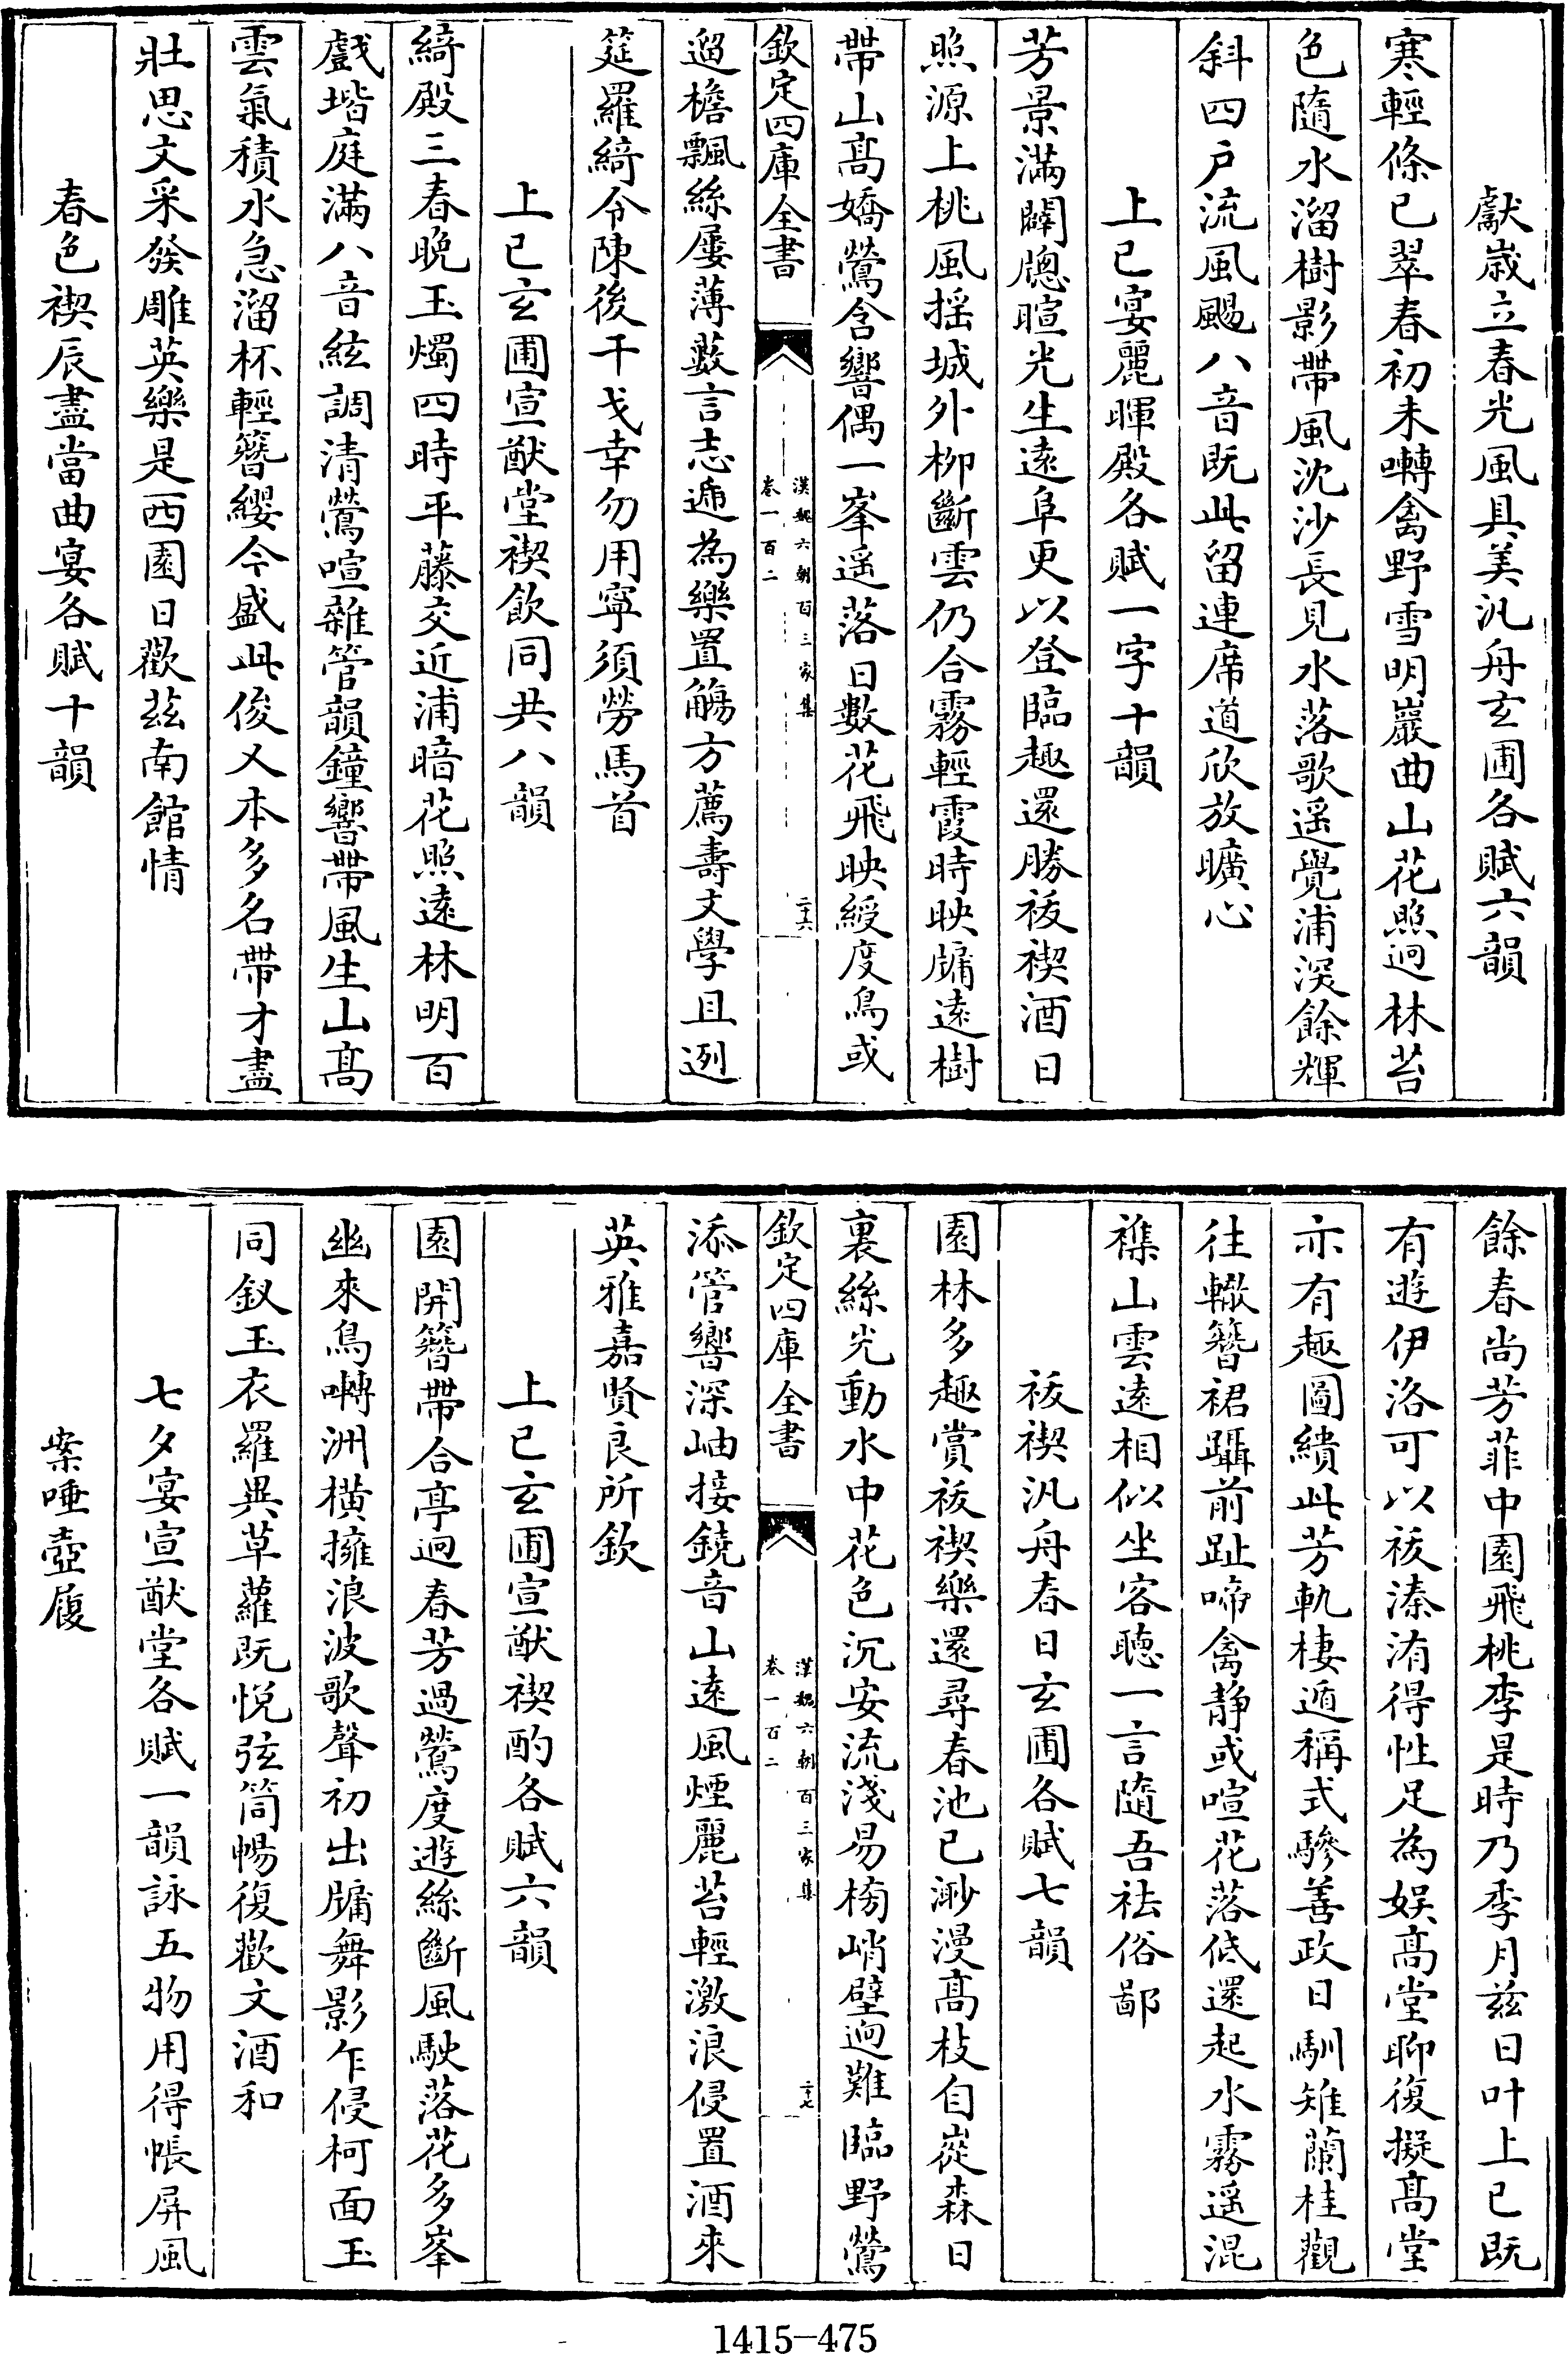 獻歳立春光風具美汎舟玄圃各賦六韻
寒輕條已翠春初未囀禽野雪明巖曲山花照迥林苔
色隨水溜樹影帶風沈沙長見水落歌遥覺浦深餘輝
斜四户流風颺八音既此留連席道欣放曠心
上已宴麗暉殿各賦一字十韻
芳景滿闢牕暄光生遠阜更以登臨趣還勝祓禊酒日
照源上桃風揺城外栁斷雲仍合霧輕霞時映牖遠樹
帶山髙嬌鶯含響偶一峯遥落日數花飛映綬度鳥或
欽定四庫全書
漢魏六朝百三家集
卷一百二
二十六
遡檐飄絲屢薄藪言志遞為樂置觴方薦壽文學且迾
筵羅綺令陳後干戈幸勿用寧須勞馬首
上已玄圃宣猷堂禊飲同共八韻
綺殿三春晚玉燭四時平藤交近浦暗花照遠林明百
戲堦庭滿八音絃調清鶯喧雜管韻鐘響帶風生山髙
雲氣積水急溜杯輕簪纓今盛此俊乂本多名帶才盡
壯思文采發雕英樂是西園日歡茲南館情
春色禊辰盡當曲宴各賦十韻
餘春尚芳菲中園飛桃李是時乃季月茲日叶上已既
有遊伊洛可以祓溱洧得性足為娱髙堂聊復擬髙堂
亦有趣圖繢此芳軌棲遁稱式驂善政日馴雉蘭桂觀
往轍簪裙躡前趾啼禽静或喧花落低還起水霧遥混
襍山雲遠相似坐客聽一言隨吾祛俗鄙
祓禊汎舟春日玄圃各賦七韻
園林多趣賞祓禊樂還尋春池已渺漫髙枝自嵸森日
裏絲光動水中花色沉安流淺易榜峭壁迥難臨野鶯
欽定四庫全書
漢魏六朝百三家集
卷一百二
二十七
添管響深岫接鐃音山遠風煙麗苔輕激浪侵置酒來
英雅嘉賢良所欽
上已玄圃宣猷禊酌各賦六韻
園開簪帶合亭迥春芳過鶯度遊絲斷風駛落花多峯
幽來鳥囀洲橫擁浪波歌聲初出牖舞影乍侵柯面玉
同釵玉衣羅異草蘿既悦弦筒暢復歡文酒和
七夕宴宣猷堂各賦一韻詠五物用得帳屏風
案唾壺履
1415-475